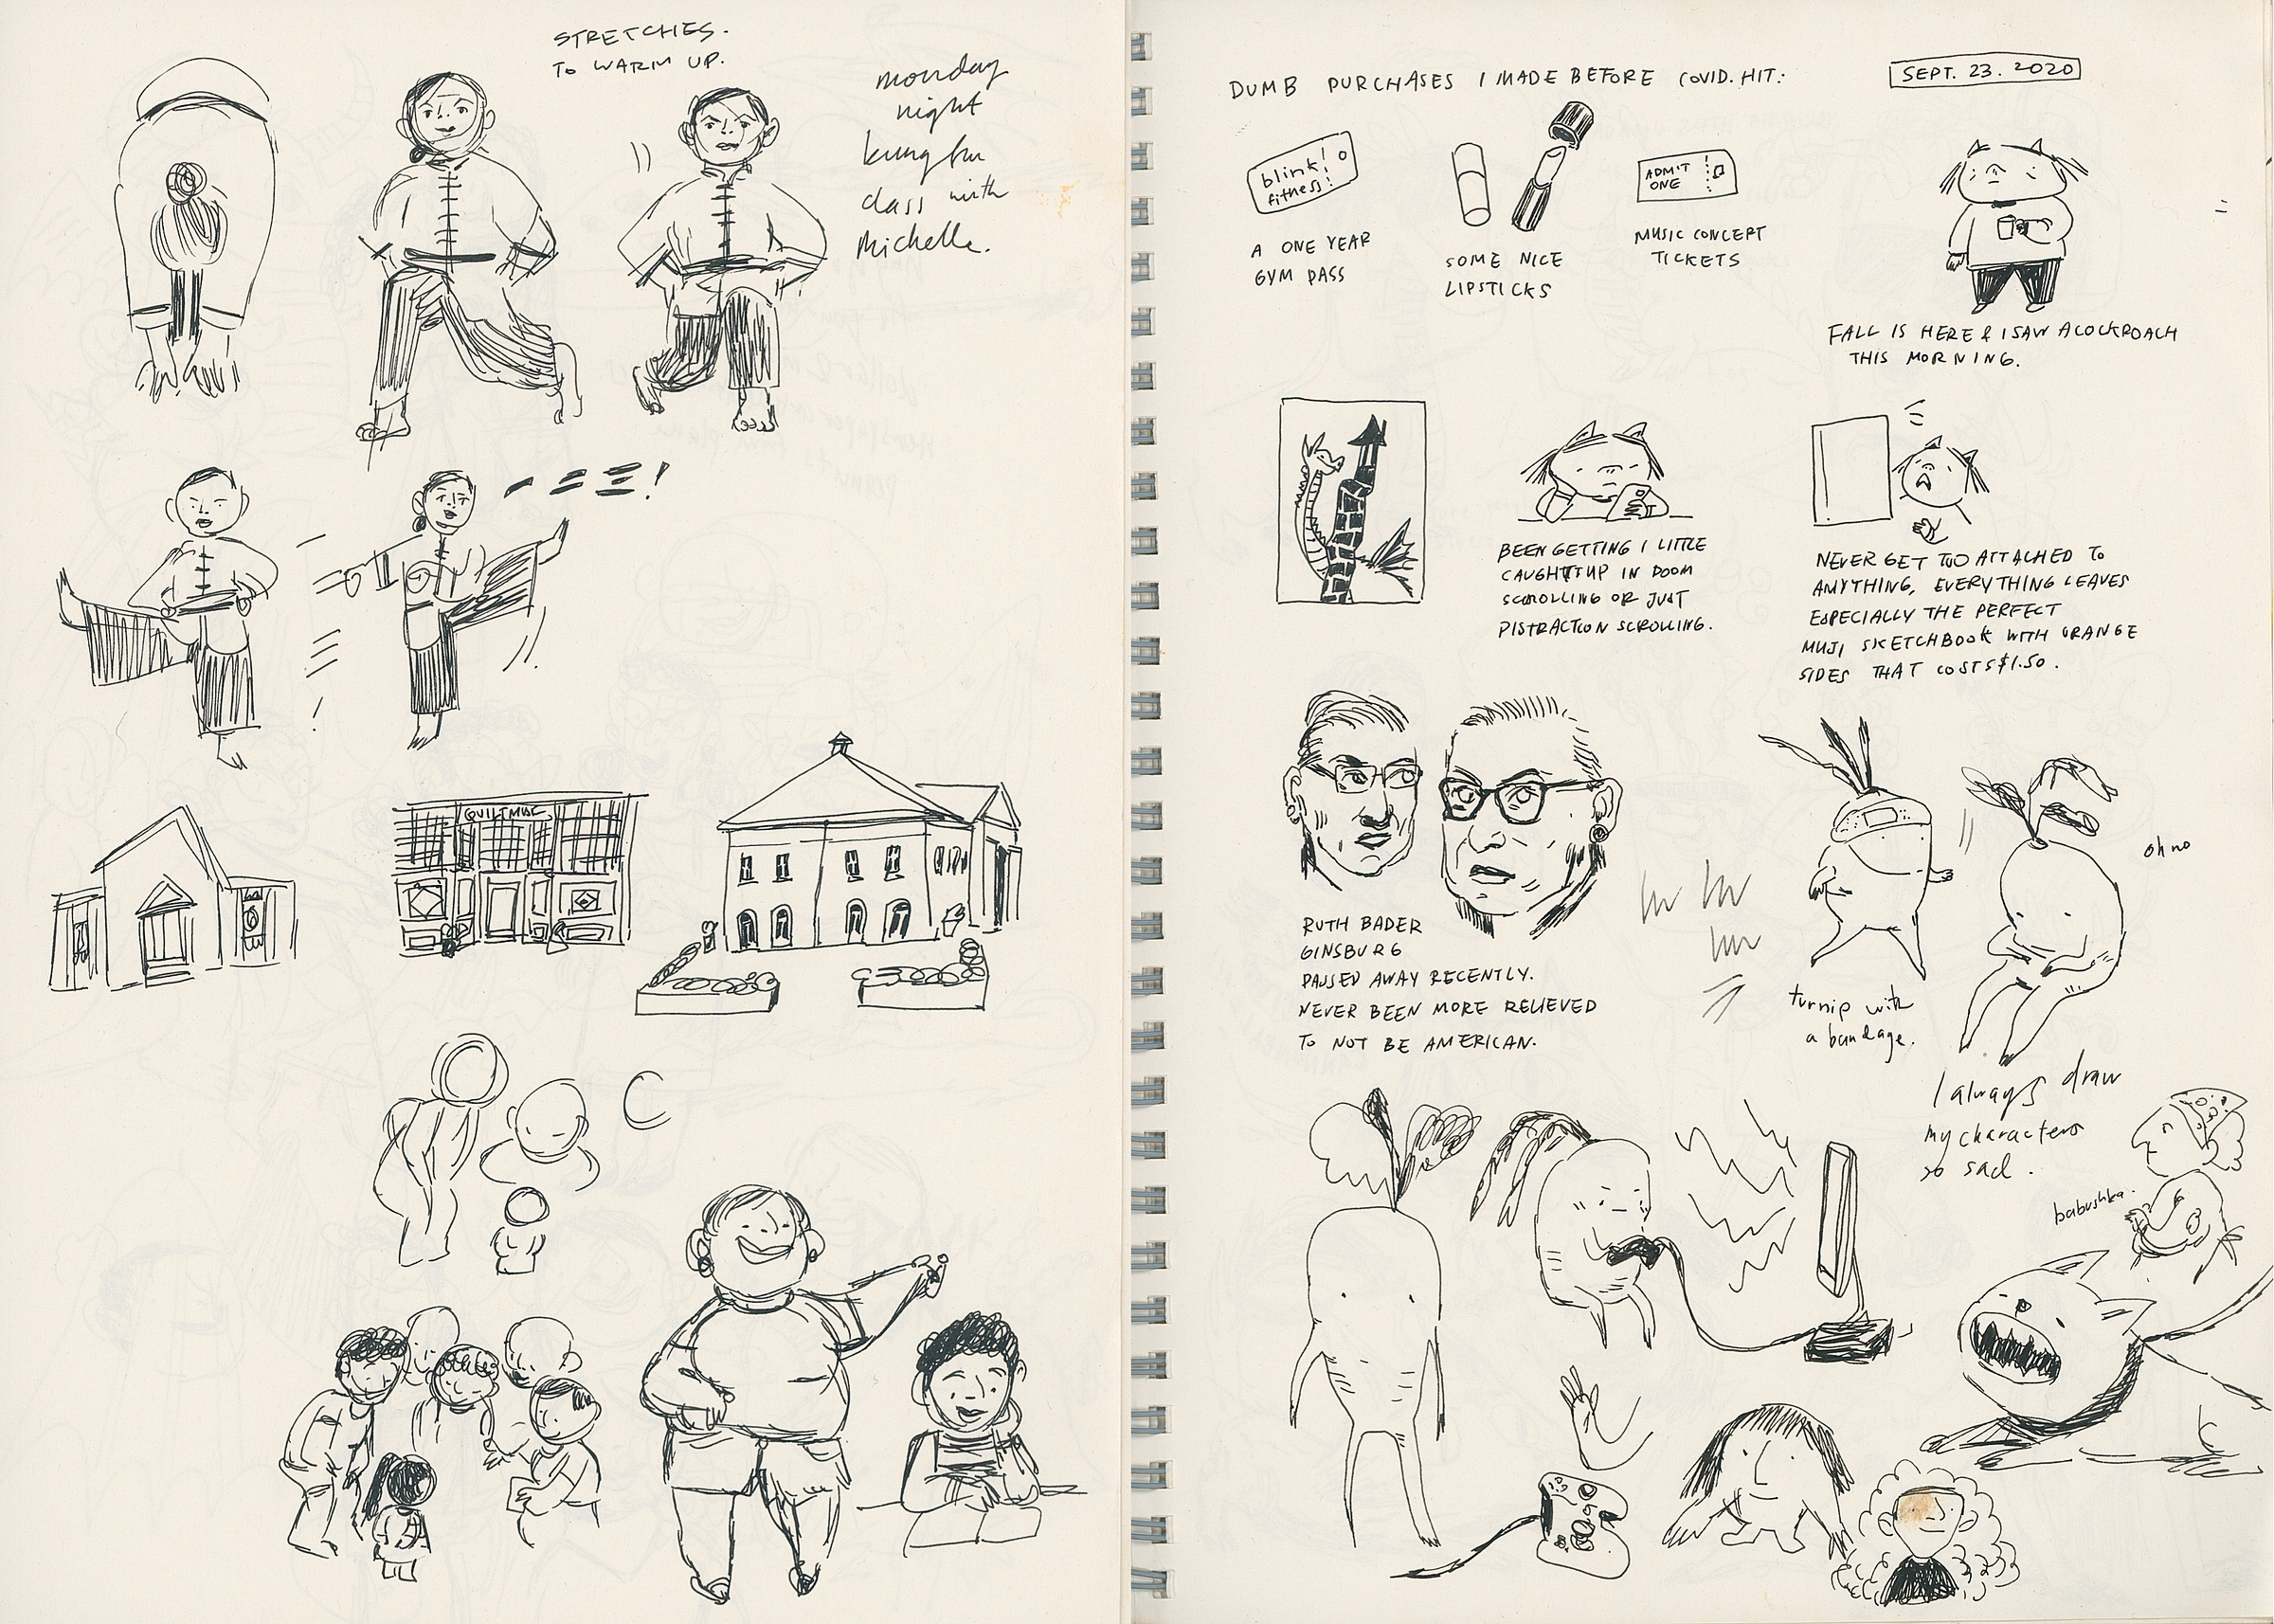 STRETCHES.
TO WARM UP.
monday
night
kung fu
class with
Michelle.
QUILT MUSE
DUMB PURCHASES I MADE BEFORE COVID. HIT:
SEPT. 23. 2020
blink!
fitness!
A ONE YEAR
GYM PASS
SOME NICE
LIPSTICKS
ADMIT
ONE
MUSIC CONCEPT
TICKETS
FALL IS HERE & I SAW A COCKROACH
THIS MORNING.
BEEN GETTING I LITTLE
CAUGHT UP IN DOOM
SCROLLING OR JUST
DISTRACTION SCROLLING.
NEVER GET TOO ATTACHED TO
ANYTHING, EVERYTHING LEAVES
ESPECIALLY THE PERFECT
MUJI SKETCHBOOK WITH ORANGE
SIDES THAT COSTS $1.50.
RUTH BADER
GINSBURG
PASSED AWAY RECENTLY.
NEVER BEEN MORE RELIEVED
TO NOT BE AMERICAN.
turnip with
a bandage.
oh no
I always draw
my characters
so sad.
babushka.